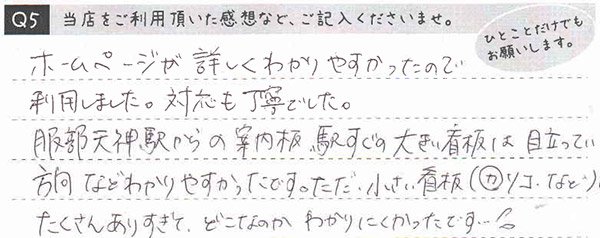 Q5 当店をご利用頂いた感想など、ご記入くださいませ。
ひとことだけでも
お願いします。
ホームページが詳しくわかりやすかったので
利用しました。対応も丁寧でした。
服部天神駅からの案内板、駅すぐの大きい看板は目立ってい
方向などわかりやすかったです。ただ、小さい看板(カリコ、など)
たくさんありすぎて、どこなのかわかりにくかったです…